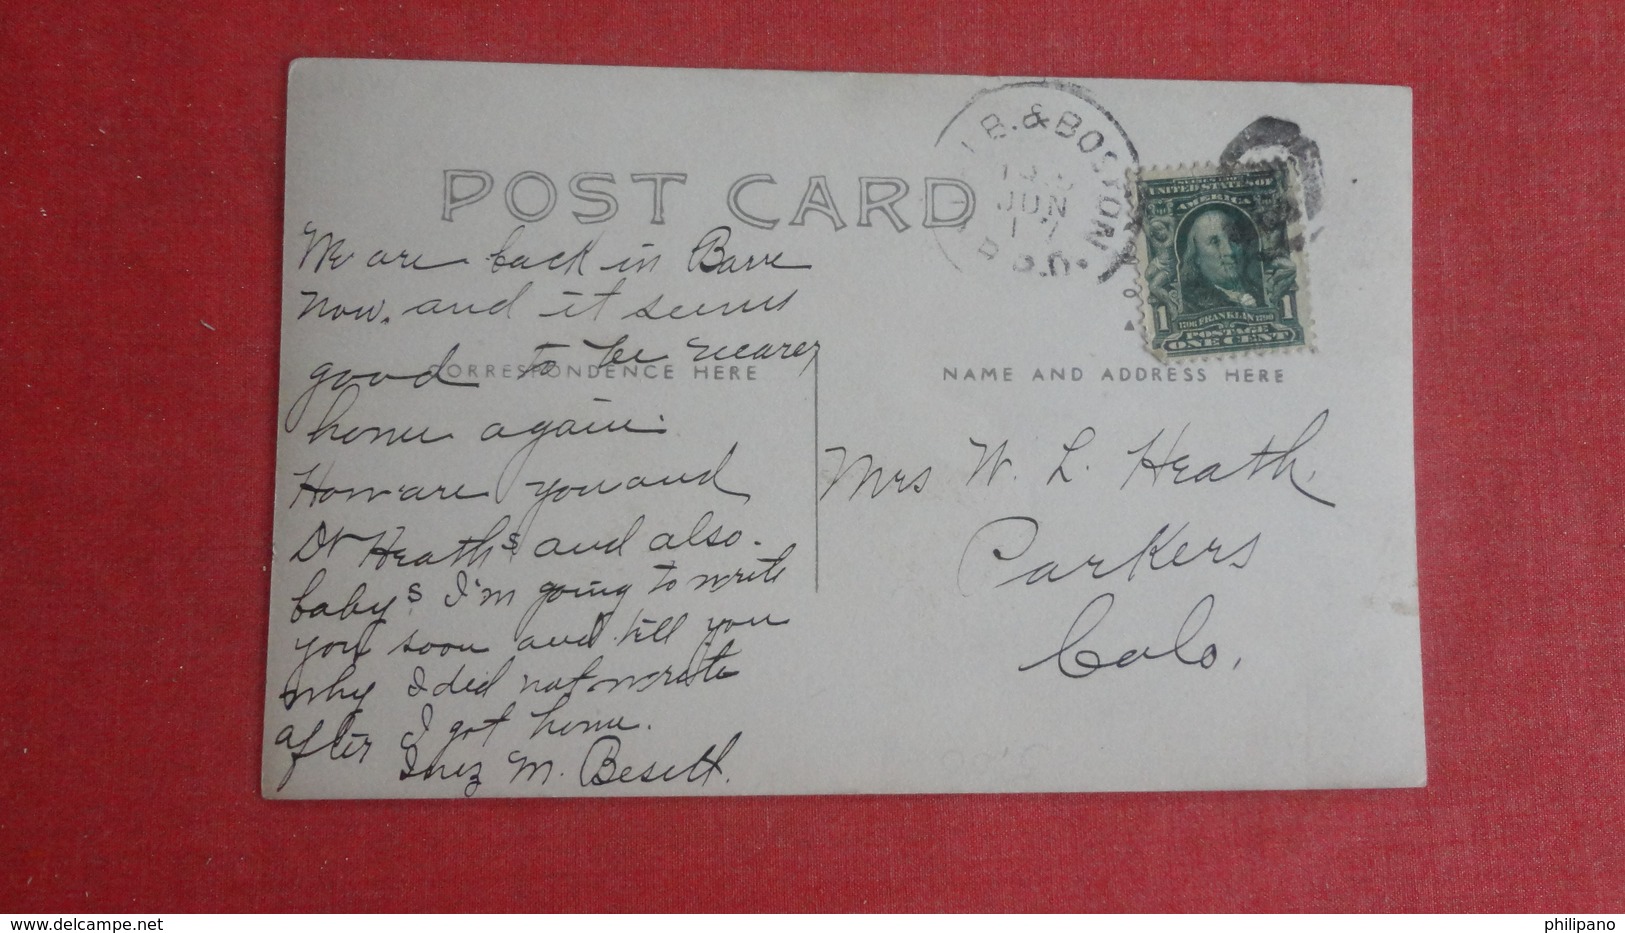 POST CARD
B. & BOSTON
JUN
17
R.P.O.
UNITED STATES OF
AMERICA
1 1706 FRANKLIN 1790 1
POSTAGE
ONE CENT
We are back in Barre
now. and it seems
good to be nearer
home again.
How are you and
Dr Heath s and also.
baby s I'm going to write
you soon and tell you
why I did not write
after I got home.
Inez M.
CORRESPONDENCE HERE
NAME AND ADDRESS HERE
Mrs W. L. Heath,
Parkers
Colo,
delcampe.net
philipano